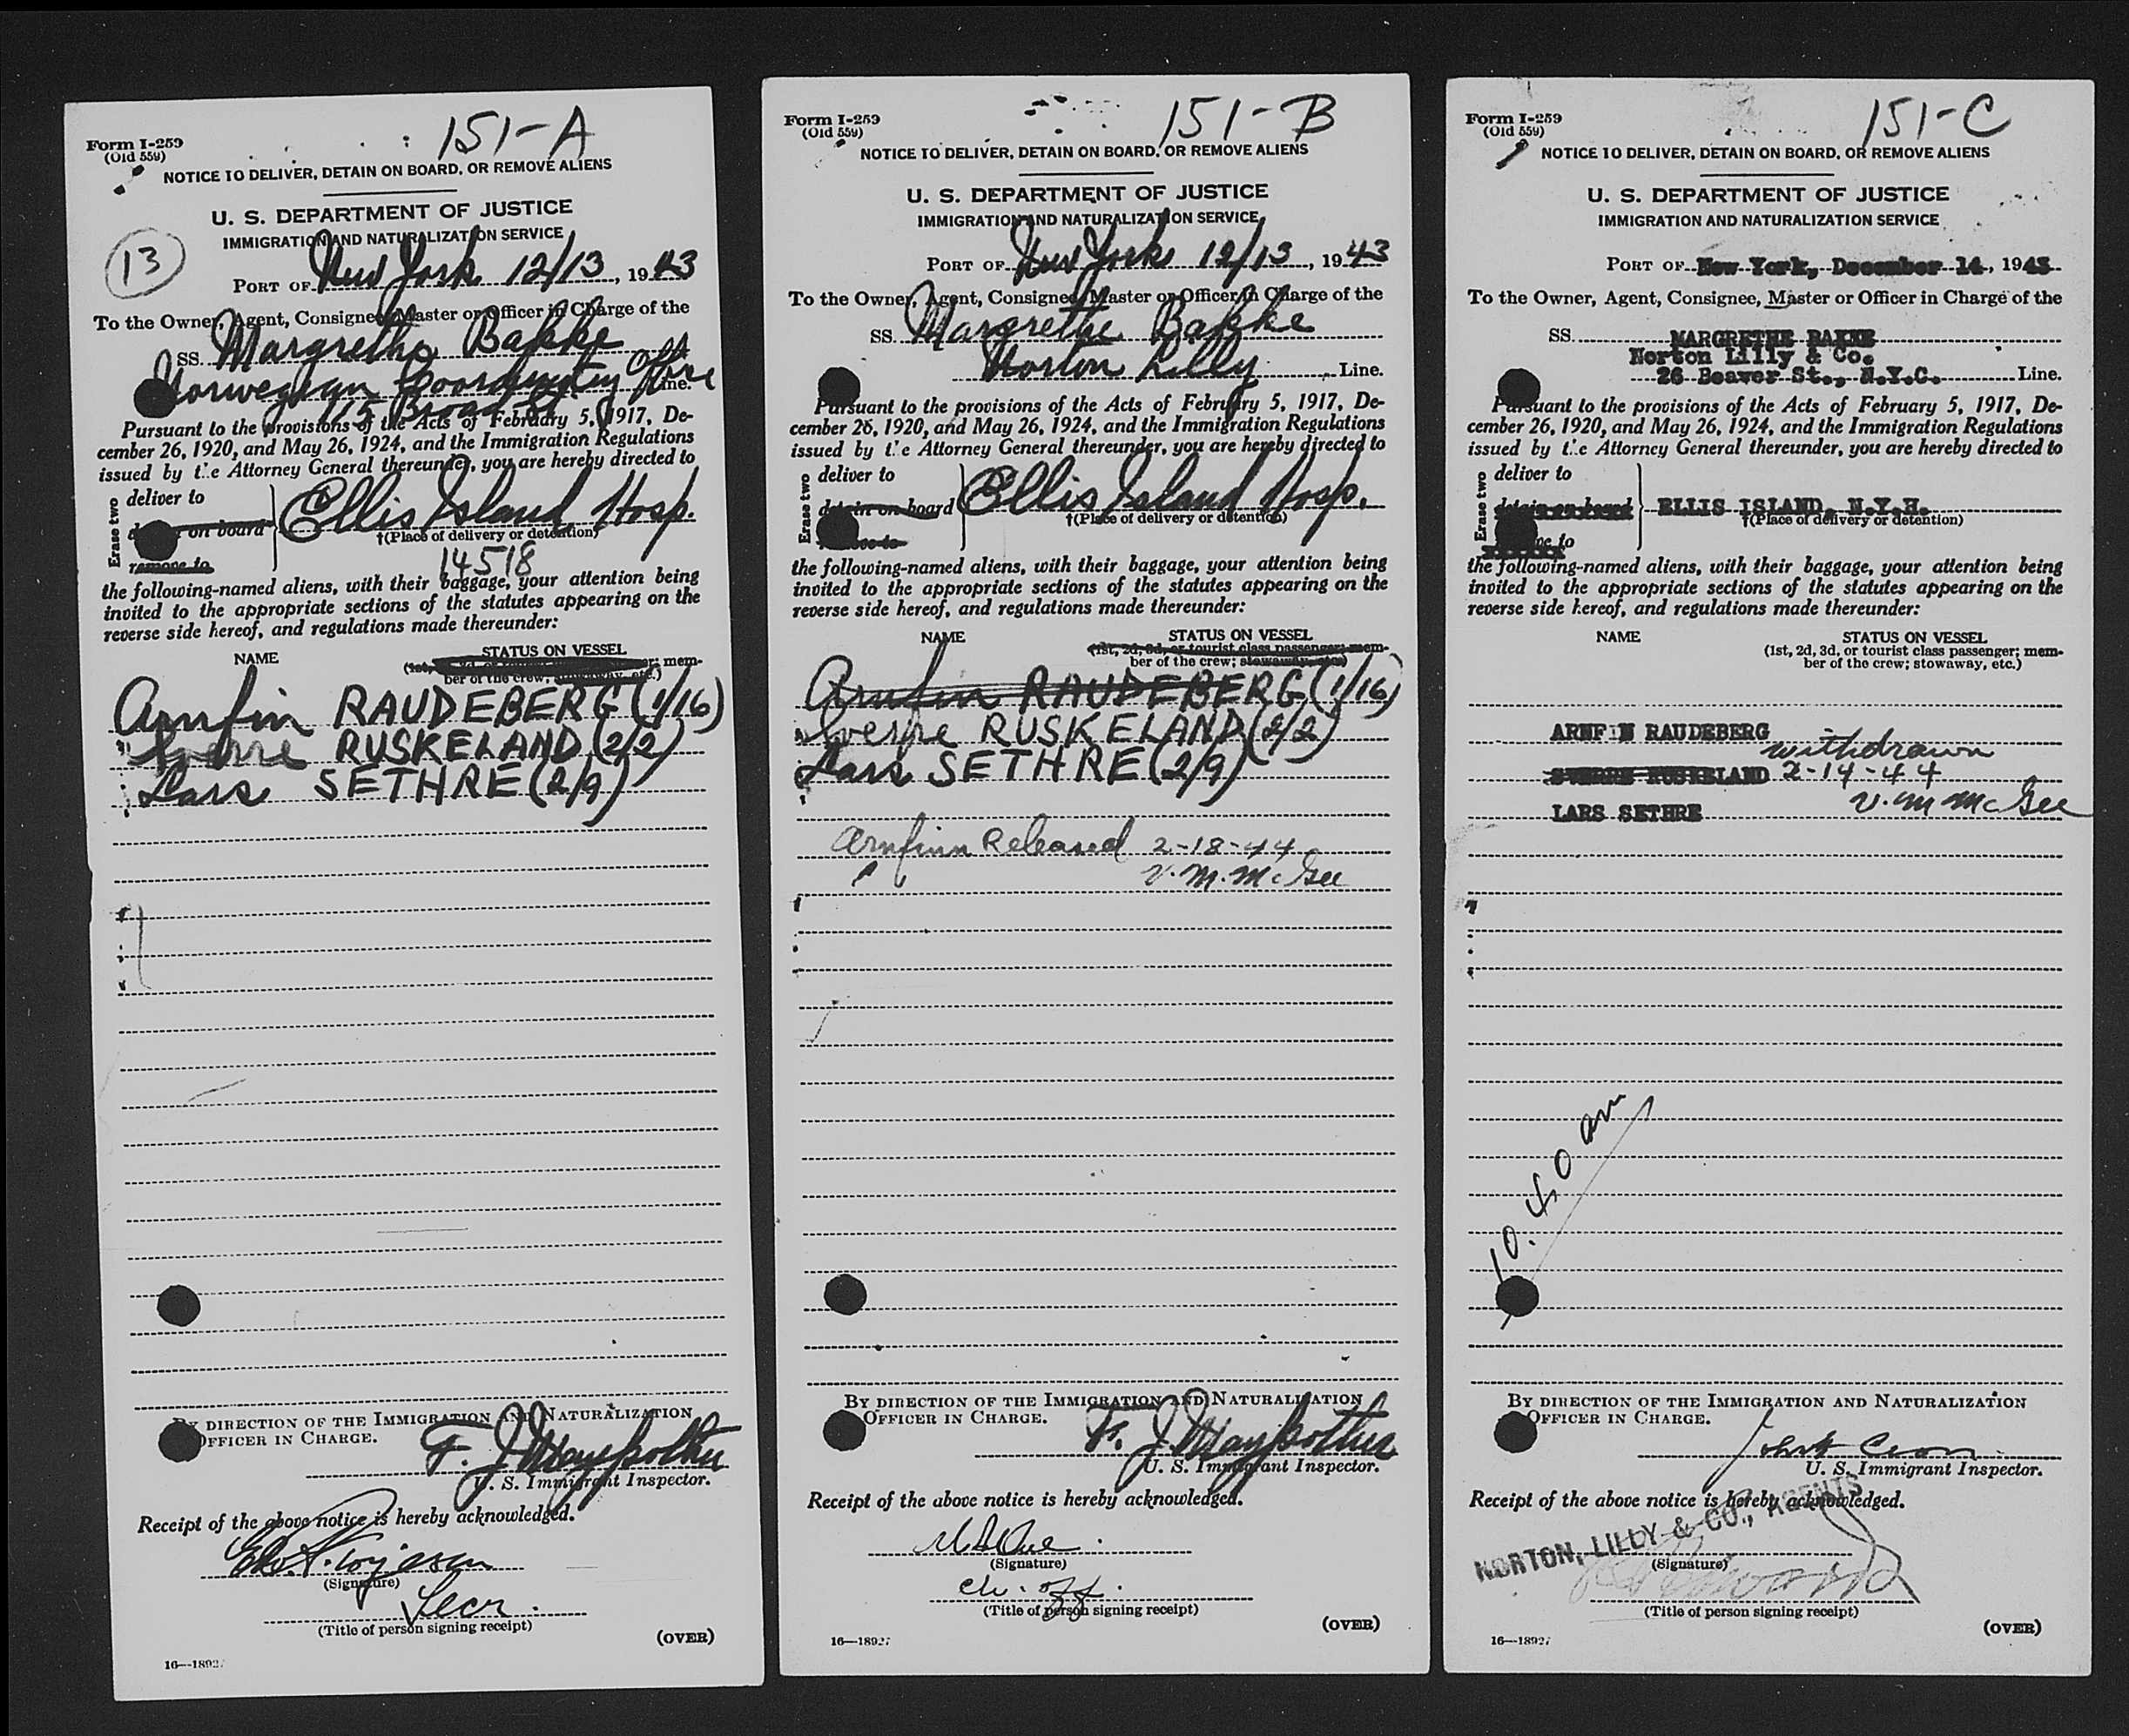 151-A
Form I-259
(Old 559)
NOTICE TO DELIVER, DETAIN ON BOARD, OR REMOVE ALIENS
U. S. DEPARTMENT OF JUSTICE
IMMIGRATION AND NATURALIZATION SERVICE
13
PORT OF New York 12/13, 1943
To the Owner, Agent, Consignee, Master or Officer in Charge of the
SS. Margrethe Bakke
Norwegian Coordinating Office Line.
115 Broad St
Pursuant to the provisions of the Acts of February 5, 1917, De-
cember 26, 1920, and May 26, 1924, and the Immigration Regulations
issued by the Attorney General thereunder, you are hereby directed to
Erase two
deliver to
on board
remove to
Ellis Island Hosp.
†(Place of delivery or detention)
14518
the following-named aliens, with their baggage, your attention being
invited to the appropriate sections of the statutes appearing on the
reverse side hereof, and regulations made thereunder:
NAME
STATUS ON VESSEL
(1st, mem-
ber of the crew;
Arnfin RAUDEBERG (1/16)
Sverre RUSKELAND (2/2)
Lars SETHRE (2/9)
BY DIRECTION OF THE IMMIGRATION AND NATURALIZATION
OFFICER IN CHARGE.
F. J.
U. S. Immigrant Inspector.
Receipt of the above notice is hereby acknowledged.
(Signature)
Secr.
(Title of person signing receipt)
(OVER)
16—1892
151-B
Form I-259
(Old 559)
NOTICE TO DELIVER, DETAIN ON BOARD, OR REMOVE ALIENS
U. S. DEPARTMENT OF JUSTICE
IMMIGRATION AND NATURALIZATION SERVICE
PORT OF New York 12/13, 1943
To the Owner, Agent, Consignee, Master or Officer in Charge of the
SS. Margrethe Bakke
Norton Lilly Line.
Pursuant to the provisions of the Acts of February 5, 1917, De-
cember 26, 1920, and May 26, 1924, and the Immigration Regulations
issued by the Attorney General thereunder, you are hereby directed to
Erase two
deliver to
detain on board
remove to
Ellis Island Hosp.
†(Place of delivery or detention)
the following-named aliens, with their baggage, your attention being
invited to the appropriate sections of the statutes appearing on the
reverse side hereof, and regulations made thereunder:
NAME
STATUS ON VESSEL
(1st, 2d, 3d, or tourist class passenger; mem-
ber of the crew; stowaway, etc.)
Arnfin RAUDEBERG (1/16)
Sverre RUSKELAND (2/2)
Lars SETHRE (2/9)
Arnfinn Released 2-18-44
V. M. McGee
BY DIRECTION OF THE IMMIGRATION AND NATURALIZATION
OFFICER IN CHARGE.
F. J.
U. S. Immigrant Inspector.
Receipt of the above notice is hereby acknowledged.
(Signature)
ch. off.
(Title of person signing receipt)
(OVER)
16—18927
151-C
Form I-259
(Old 559)
NOTICE TO DELIVER, DETAIN ON BOARD, OR REMOVE ALIENS
U. S. DEPARTMENT OF JUSTICE
IMMIGRATION AND NATURALIZATION SERVICE
PORT OF New York, December 14, 1943
To the Owner, Agent, Consignee, Master or Officer in Charge of the
SS. MARGRETHE BAKKE
Norton Lilly & Co.
26 Beaver St., N.Y.C. Line.
Pursuant to the provisions of the Acts of February 5, 1917, De-
cember 26, 1920, and May 26, 1924, and the Immigration Regulations
issued by the Attorney General thereunder, you are hereby directed to
Erase two
deliver to
detain on board
remove to
ELLIS ISLAND, N.Y.H.
†(Place of delivery or detention)
the following-named aliens, with their baggage, your attention being
invited to the appropriate sections of the statutes appearing on the
reverse side hereof, and regulations made thereunder:
NAME
STATUS ON VESSEL
(1st, 2d, 3d, or tourist class passenger; mem-
ber of the crew; stowaway, etc.)
ARNFIN RAUDEBERG
withdrawn
SVERRE RUSKELAND 2-14-44
LARS SETHRE V. M. McGee
10.40 am
BY DIRECTION OF THE IMMIGRATION AND NATURALIZATION
OFFICER IN CHARGE.
U. S. Immigrant Inspector.
Receipt of the above notice is hereby acknowledged.
NORTON, LILLY & CO., AGENTS
(Signature)
(Title of person signing receipt)
(OVER)
16—18927